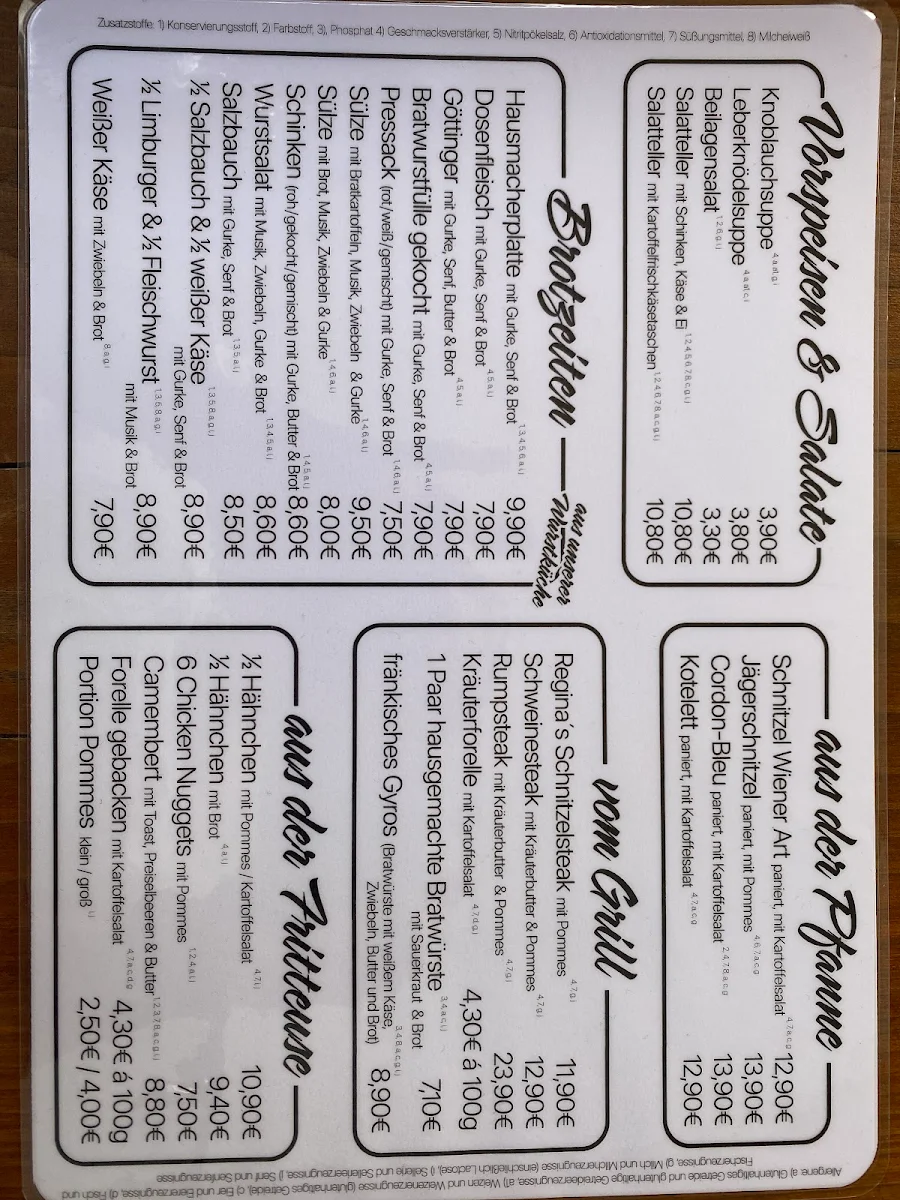 Zusatzstoffe: 1) Konservierungsstoff, 2) Farbstoff, 3), Phosphat 4) Geschmacksverstärker, 5) Nitritpökelsalz, 6) Antioxidationsmittel, 7) Süßungsmittel, 8) Milcheiweiß
Vorspeisen & Salate
Knoblauchsuppe 3,90€
Leberknödelsuppe 3,80€
Beilagensalat 3,30€
Salatteller mit Schinken, Käse & Ei 10,80€
Salatteller mit Kartoffelfrischkäsetaschen 10,80€
Brotzeiten
aus unserer
Wurstküche
Hausmacherplatte mit Gurke, Senf & Brot 9,90€
Dosenfleisch mit Gurke, Senf & Brot 7,90€
Göttinger mit Gurke, Senf, Butter & Brot 7,90€
Bratwurstfülle gekocht mit Gurke, Senf & Brot 7,90€
Pressack (rot/weiß/gemischt) mit Gurke, Senf & Brot 7,50€
Sülze mit Bratkartoffeln, Musik, Zwiebeln & Gurke 9,50€
Sülze mit Brot, Musik, Zwiebeln & Gurke 8,00€
Schinken (roh/gekocht/gemischt) mit Gurke, Butter & Brot 8,60€
Wurstsalat mit Musik, Zwiebeln, Gurke & Brot 8,60€
Salzbauch mit Gurke, Senf & Brot 8,50€
½ Salzbauch & ½ weißer Käse 8,90€
mit Gurke, Senf & Brot
½ Limburger & ½ Fleischwurst 8,90€
mit Musik & Brot
Weißer Käse mit Zwiebeln & Brot 7,90€
aus der Pfanne
Schnitzel Wiener Art paniert, mit Kartoffelsalat 12,90€
Jägerschnitzel paniert, mit Pommes 13,90€
Cordon-Bleu paniert, mit Kartoffelsalat 13,90€
Kotelett paniert, mit Kartoffelsalat 12,90€
vom Grill
Regina´s Schnitzelsteak mit Pommes 11,90€
Schweinesteak mit Kräuterbutter & Pommes 12,90€
Rumpsteak mit Kräuterbutter & Pommes 23,90€
Kräuterforelle mit Kartoffelsalat 4,30€ á 100g
1 Paar hausgemachte Bratwürste
mit Sauerkraut & Brot 7,10€
fränkisches Gyros (Bratwürste mit weißem Käse,
Zwiebeln, Butter und Brot) 8,90€
aus der Fritteuse
½ Hähnchen mit Pommes / Kartoffelsalat 10,90€
½ Hähnchen mit Brot 9,40€
6 Chicken Nuggets mit Pommes 7,50€
Camembert mit Toast, Preiselbeeren & Butter 8,80€
Forelle gebacken mit Kartoffelsalat 4,30€ á 100g
Portion Pommes klein / groß 2,50€ / 4,00€
Allergene: a) Glutenhaltiges Getreide und glutenhaltige Getreideerzeugnisse, a1) Weizen und Weizenerzeugnisse (glutenhaltiges Getreide), c) Eier und Eiererzeugnisse, d) Fisch und
Fischerzeugnisse, g) Milch und Milcherzeugnisse (einschließlich Lactose), i) Sellerie und Sellerieerzeugnisse, j) Senf und Senferzeugnisse